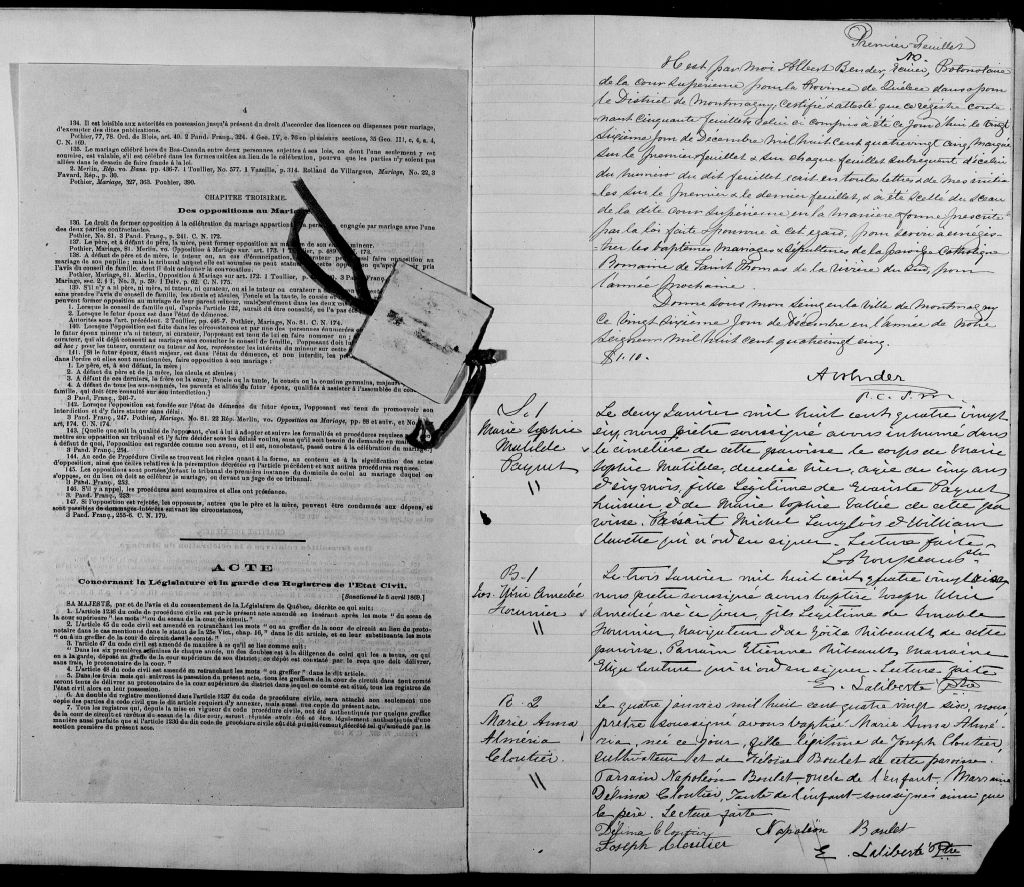 4
134. Il est loisible aux autorités en possession jusqu'à présent du droit d'accorder des licences ou dispenses pour mariage,
d'exempter des dites publications.
Pothier, 77, 78. Ord. de Blois, art. 40. 2 Pand. Franç., 224. 4 Geo. IV, c. 76 en plusieurs sections, 35 Geo. III, c. 4, s. 4,
C. N. 169.
135. Le mariage célébré hors du Bas-Canada entre deux personnes sujettes à ses lois, ou dont l'une seulement y est
soumise, est valable, s'il est célébré dans les formes usitées au lieu de la célébration, pourvu que les parties n'y soient pas
allées dans le dessein de faire fraude à la loi.
2 Merlin, Rép. vo. Bans. pp. 436-7. 1 Toullier, No. 577. 1 Vazeille, p. 314. Rolland de Villargues, Mariage, No. 22, 3
Favard, Rép., p. 36.
Pothier, Mariage, 327, 363. Pothier, 390.
CHAPITRE TROISIÈME.
Des oppositions au Maria
136. Le droit de former opposition à la célébration du mariage appartient engagée par mariage avec l'une
des deux parties contractantes.
Pothier, No. 81. 3 Pand. Franç., p. 241. C. N. 172.
137. Le père, et à défaut de père, la mère, peut former opposition au de son mineur.
Pothier, Mariage, 81. Merlin, vo. Opposition à Mariage sur art. 173. 1
138. A défaut de père et de mère, le tuteur ou, au cas d'émancipation, faire opposition au
mariage de son pupille; mais le tribunal auquel elle est soumise ne peut opposition qu'après pris
l'avis du conseil de famille, dont il doit ordonner la convocation.
Pothier, Mariage, 81. Merlin, Opposition à Mariage sur art. 172. 1 Toullier,
Mariage, sec. 2, § 1, No. 3, p. 59. 1 Delv. p. 62. C. N. 175.
139. S'il n'y a ni père, ni mère, ni tuteur, ni curateur, ou si le tuteur ou curateur a
sans prendre l'avis du conseil de famille, les aïeuls et aïeules, l'oncle et la tante, le cousin
peuvent former opposition au mariage de leur parent mineur, mais seulement dans les deux
1. Lorsque le conseil de famille qui, d'après l'article 122, aurait dû être consulté, ne l'a pas été
2. Lorsque le futur époux est dans l'état de démence.
Autorités sous l'art. précédent. 2 Toullier, pp. 486-7. Pothier, Mariage, No. 81. C. N. 174.
140. Lorsque l'opposition est faite dans les circonstances et par une des personnes
le futur époux mineur n'a ni tuteur, ni curateur, l'opposant est tenu de lui en faire nommer
curateur, qui ait déjà consenti au mariage sans consulter le conseil de famille, l'opposant doit
ad hoc; pour les tuteur, curateur ou tuteur ad hoc, représenter les intérêts du mineur sur cette
141. [Si le futur époux, étant majeur, est dans l'état de démence, et non interdit, les
dans l'ordre où elles sont mentionnées, faire opposition à son mariage:
1. Le père, et, à son défaut, la mère;
2. A défaut du père et de la mère, les aïeuls et aïeules;
3. A défaut de ces derniers, le frère ou la sœur, l'oncle ou la tante, le cousin ou la cousine germaine, majeurs
4. A défaut de tous les sus-nommés, les parents et alliés du futur époux, qualifiés à assister à l'assemblée du con
famille, qui doit être consulté sur son interdiction.]
3 Pand. Franç., 246-7.
142. Lorsque l'opposition est fondée sur l'état de démence du futur époux, l'opposant est tenu de promouvoir son
interdiction et d'y faire statuer sans délai.
3 Pand. Franç., 247. Pothier, Mariage, No. 81. 22 Rép. Merlin, vo. Opposition au Mariage, pp. 88 et suiv., et No.
art. 174. C. N. 174.
143. [Quelle que soit la qualité de l'opposant, c'est à lui à adopter et suivre les formalités et procédures requises
mettre son opposition au tribunal et l'y faire décider sous le délai voulu, sans qu'il soit besoin de demande en main
à défaut de quoi, l'opposition est regardée comme non avenue, et il est, nonobstant, passé outre à la célébration du mariage.]
3 Pand. Franç., 254.
144. Au code de Procédure Civile se trouvent les règles quant à la forme, au contenu et à la signification des actes
d'opposition, ainsi que celles relatives à la péremption décrétée en l'article précédent et aux autres procédures requises.
145. Les oppositions sont portées devant le tribunal de première instance du domicile de celui au mariage duquel on
s'oppose, ou du lieu où doit se célébrer le mariage, ou devant un juge de ce tribunal.
3 Pand. Franç., 252.
146. S'il y a appel, les procédures sont sommaires et elles ont préséance.
3 Pand. Franç., 253.
147. Si l'opposition est rejetée, les opposants, autres que le père et la mère, peuvent être condamnés aux dépens, et
sont passibles de dommages-intérêts suivant les circonstances.
3 Pand. Franç., 255-6. C. N. 179.
ACTE
Concernant la Législature et la garde des Registres de l'Etat Civil.
[Sanctionné le 5 avril 1869.]
SA MAJESTÉ, par et de l'avis et du consentement de la Législature de Québec, décrète ce qui suit:
1. L'article 1236 du code de procédure civile est par le présent acte amendé en ajoutant après les mots "du sceau de
la cour supérieure" les mots "ou du sceau de la cour de circuit."
2. L'article 45 du code civil est amendé en retranchant les mots "ou au greffier de la cour de circuit au lieu du proto-
notaire dans le cas mentionné dans le statut de la 25e Vict., chap. 16," dans le dit article, et en leur substituant les mots
"ou à un greffier de la cour de circuit dans le comté."
3. l'article 47 du code civil est amendé de manière à se qu'il se lise comme suit:
"Dans les six premières semaines de chaque année, un des doubles est à la diligence de celui qui les a tenus, ou qui
en a la garde, déposé au greffe de la cour supérieure de son district; ce dépôt est constaté par le reçu que doit délivrer,
sans frais, le protonotaire de la cour."
4. L'article 48 du code civil est amendé en retranchant les mots "ou greffier" dans le dit article.
5. Dans les trois mois qui suivront la passation du présent acte, tous les greffiers de la cour de circuit dans tout comté
seront tenus de délivrer au protonotaire de la cour supérieure du district dans lequel ce comté est situé, tous les registres de
l'état civil alors en leur possession.
6. Au double du registre mentionné dans l'article 1237 du code de procédure civile, sera attaché non seulement une
copie des parties du code civil que le dit article requiert d'y annexer, mais aussi une copie du présent acte.
7. Tous les registres qui, depuis la mise en vigueur du code de procédure civile, ont été authentiqués par quelque greffier
de la cour de circuit et revêtus du sceau de la dite cour, seront réputés avoir été et être légalement authentiqués d'une
manière aussi parfaite que si l'article 1236 du dit code de procédure civile eût été primitivement décrété tel qu'amendé par la
section première du présent acte.
Premier Feuillet
No
Est par moi Albert Bender, Ecuier, Protonotaire
de la cour Supérieure pour la Province de Québec dans & pour
le District de Montmagny, Certifié & attesté que ce registre conte
nant Cinquante feuillets celui ci compris a été ce jour d'hui le vingt
Sixième jour de Décembre Mil huit cent quatrevingt cinq, marqué
sur le premier feuillet & sur chaque feuillet subséquent d'icelui
du numéro du dit feuillet écrit en toutes lettres & de mes initia
les sur le premier & le dernier feuillet, & a été scellé du sceau
de la dite cour Supérieure en la manière & forme prescrite
par la loi faite & pourvue à cet égard, pour servir à enregis-
trer les baptêmes, mariages & sépultures de la paroisse Catholique
Romaine de Saint Thomas de la rivière du Sud, pour
l'année prochaine.
Donné sous mon seing en la ville de Montmagny
ce Vingt Sixième Jour de Décembre en l'année de Notre
Seigneur Mil huit cent quatrevingt cinq.
$1.10.
A Bender
P. C. S. M
S. 1
Marie Sophie
Matilde
Paquet
"
Le deux Janvier mil huit cent quatre vingt
six, nous prêtre soussigné avons inhumé dans
le cimetière de cette paroisse le corps de Marie
Sophie Matilde, decedée hier, agée de cinq ans
& six mois, fille Legitime de Evariste Paquet
huissier & de Marie Sophie Vallée de cette pa
roisse. Présent Michel Langlois & William
Chouette qui n'ont su signer. Lecture faite
L. Rousseau ptre
B. 1
Jos. Ulric Amedée
Fournier
"
Le trois Janvier mil huit cent quatre vingt six
nous prêtre soussigné avons baptisé Joseph Ulric
Amedée né ce jour, fils Legitime de Amable
Fournier, navigateur & de Zoïle Thibeault de cette
paroisse. Parrain Etienne Thibeault, marraine
Elize Couture, qui n'ont su signer. Lecture faite
E. Laliberté Ptre
B. 2
Marie Anna
Alméria
Cloutier.
"
Le quatre janvier mil huit cent quatre vingt six, nous
prêtre soussigné avons baptisé Marie Anna Almé-
ria, née ce jour, fille légitime de Joseph Cloutier,
cultivateur et de Héloïse Boulet de cette paroisse.
Parrain Napoléon Boulet oncle de l'enfant, Marraine
Delima Cloutier, Tante de l'enfant soussignés ainsi que
le père. Lecture faite
Délima Cloutier Napoléon Boulet
Joseph Cloutier E. Laliberté Ptre